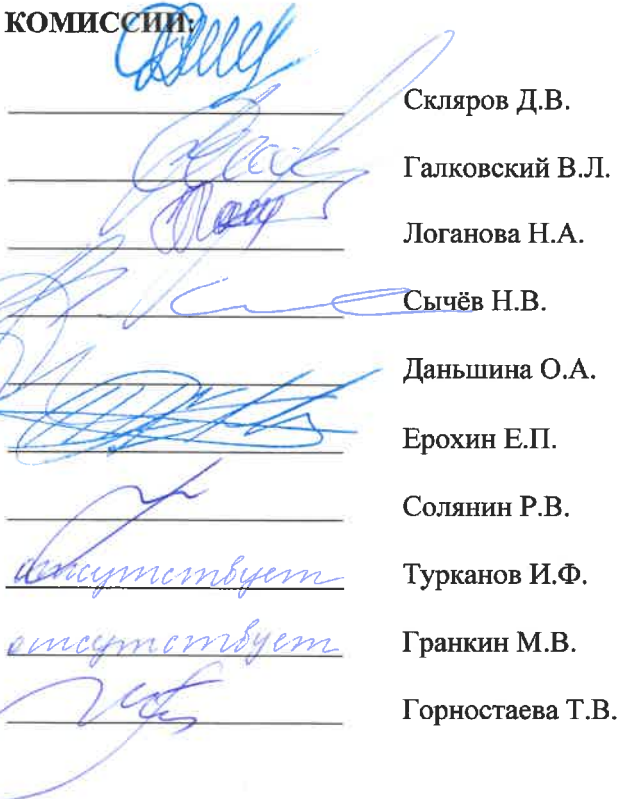 КОМИССИИ:
Скляров Д.В.
Галковский В.Л.
Логанова Н.А.
Сычёв Н.В.
Даньшина О.А.
Ерохин Е.П.
Солянин Р.В.
отсутствует Турканов И.Ф.
отсутствует Гранкин М.В.
Горностаева Т.В.